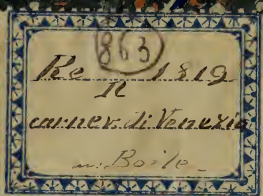 863
Re 1819
R
carnev. di Venezia
Boile